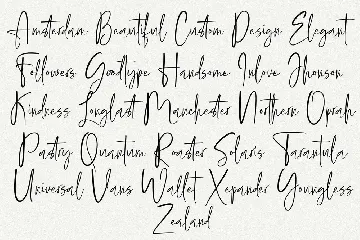 Amsterdam Beautiful Custom Design Elegant
Followers Goodtype Handsome Inlove Jhonson
Kindness Longlast Manchester Northern Oprah
Pastry Quantum Roaster Solaris Tarantula
Universal Vans Wallet Xepander Youngless
Zealand